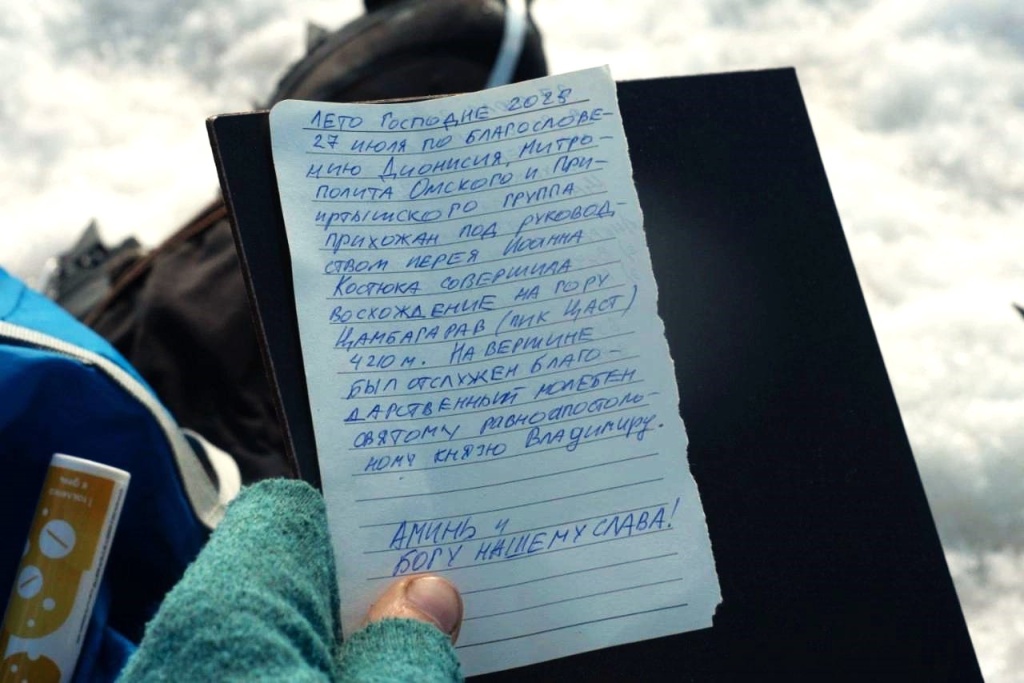 ЛЕТО ГОСПОДНЕ 2023
27 ИЮЛЯ ПО БЛАГОСЛОВЕ-
НИЮ ДИОНИСИЯ, МИТРО-
ПОЛИТА ОМСКОГО И ПРИ-
ИРТЫШСКОГО ГРУППА
ПРИХОЖАН ПОД РУКОВОД-
СТВОМ ИЕРЕЯ ИОАННА
КОСТЮКА СОВЕРШИЛА
ВОСХОЖДЕНИЕ НА ГОРУ
ЦАМБАГАРАВ (ПИК ЦАСТ)
4210 М. НА ВЕРШИНЕ
БЫЛ ОТСЛУЖЕН БЛАГО-
ДАРСТВЕННЫЙ МОЛЕБЕН
СВЯТОМУ РАВНОАПОСТОЛЬ-
НОМУ КНЯЗЮ ВЛАДИМИРУ.
АМИНЬ И
БОГУ НАШЕМУ СЛАВА!